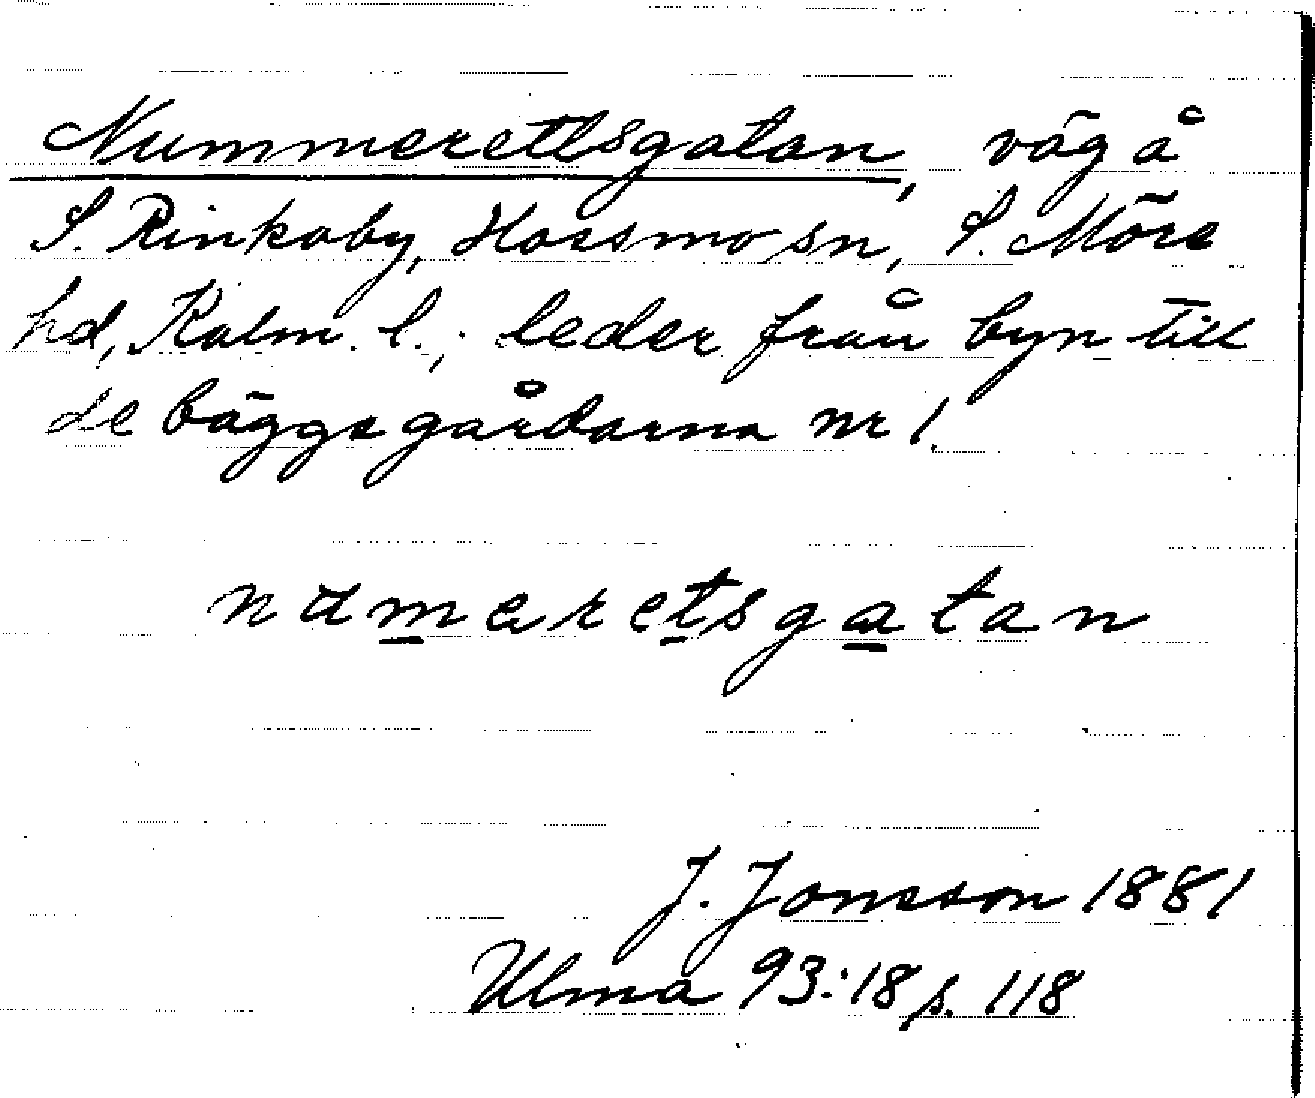 Nummerettsgatan, väg å
S. Rinkaby, Hossmo sn, S. Möre
hd, Kalm. l.; leder från byn till
de bägge gårdarna nr 1.
numeretsgatan
J. Jonsson 1881
Ulma 93:18 s. 118